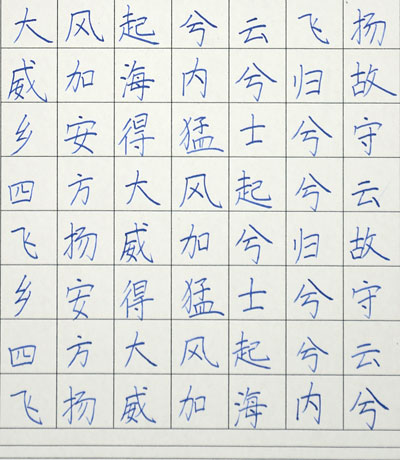 大风起兮云飞扬
威加海内兮归故
乡安得猛士兮守
四方大风起兮云
飞扬威加兮归故
乡安得猛士兮守
四方大风起兮云
飞扬威加海内兮